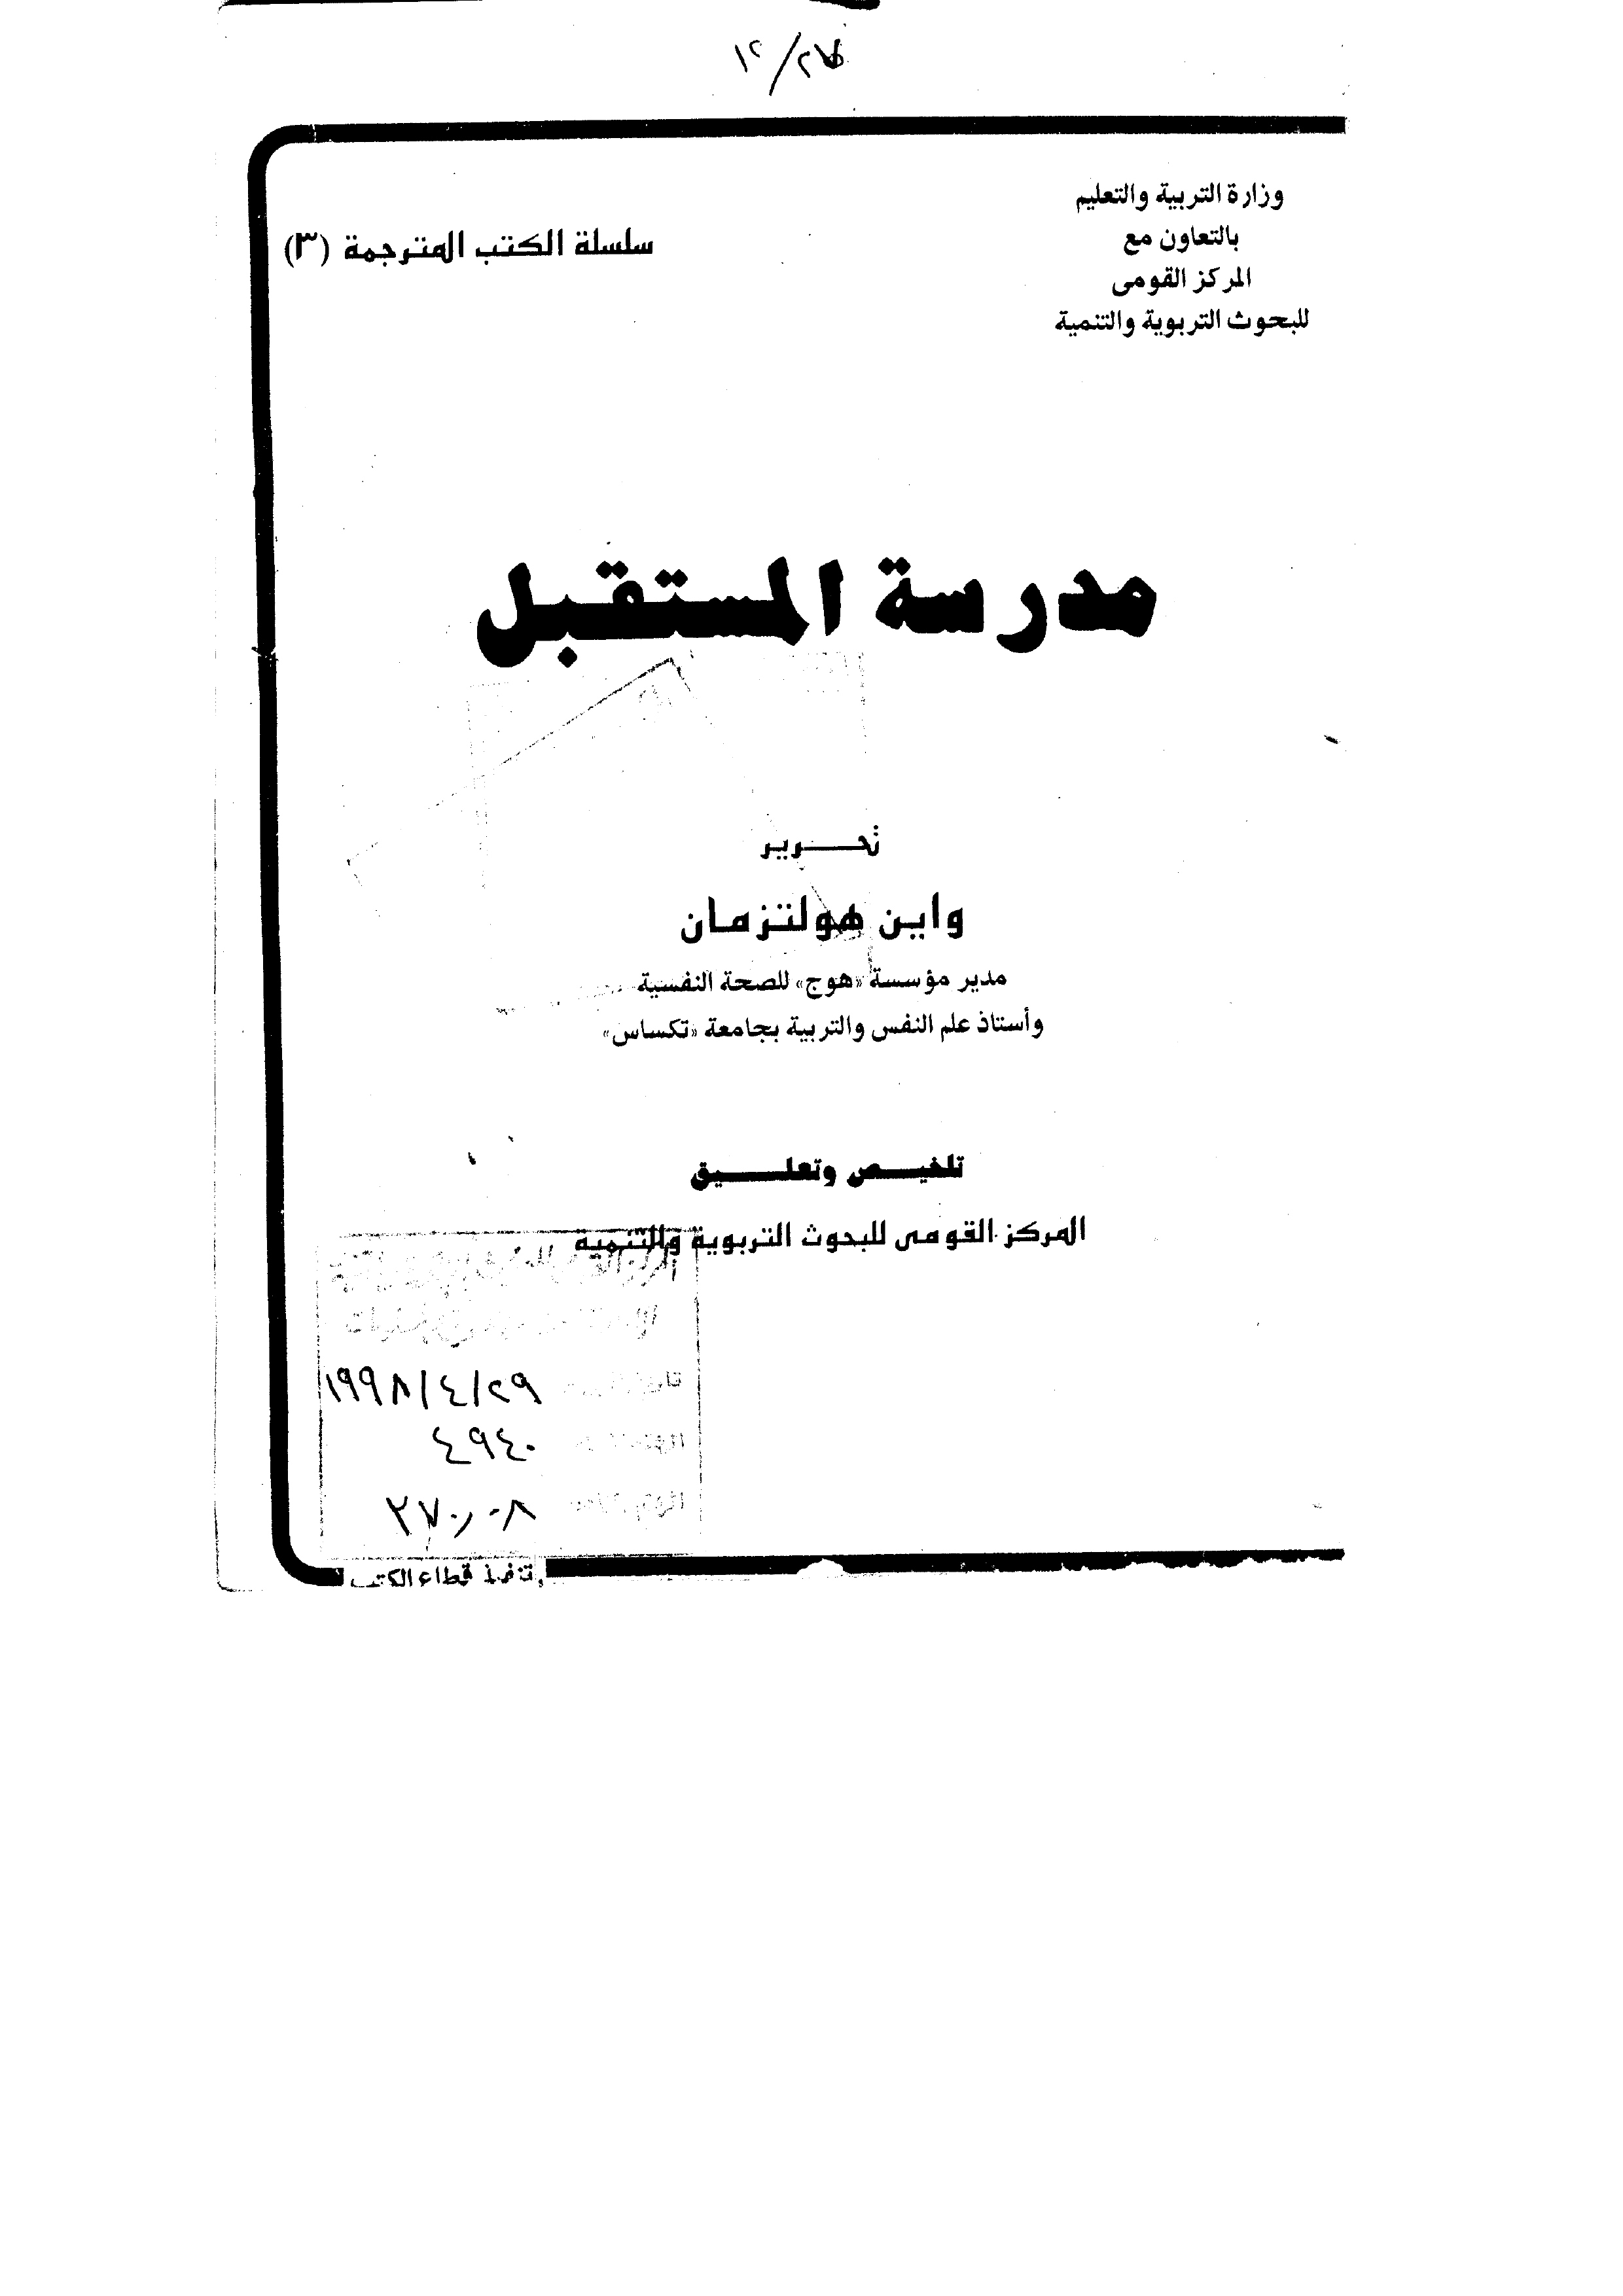 وزارة التربية والتعليم
بالتعاون مع
المركز القومى
للبحوث التربوية والتنمية
سلسلة الكتب المترجمة (٣)
مدرسة المستقبل
تحرير
واين هولتزمان
مدير مؤسسة «هوج» للصحة النفسية
وأستاذ علم النفس والتربية بجامعة «تكساس»
تلخيص وتعليق
المركز القومى للبحوث التربوية والتنمية
١٩٩٨/٤/٢٩
٤٩٤٠
قطاع الكتب